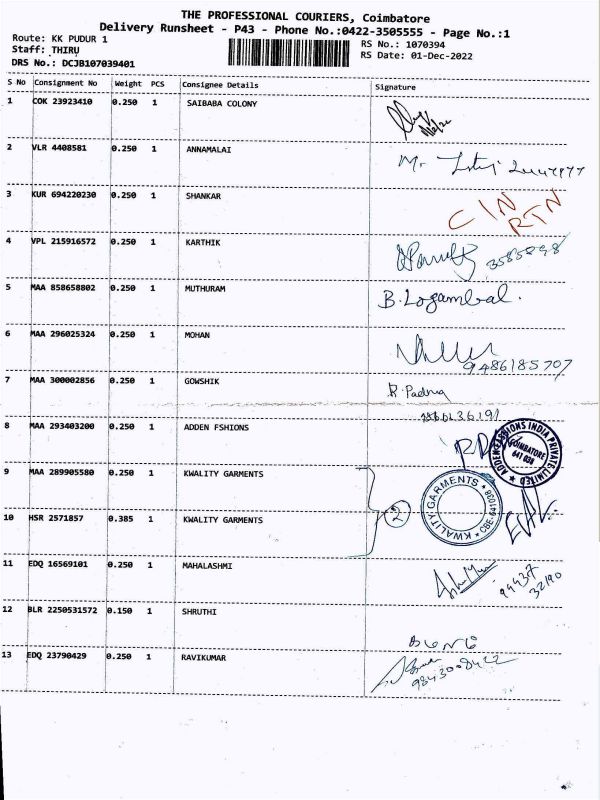 THE PROFESSIONAL COURIERS, Coimbatore
Delivery Runsheet - P43 - Phone No.:0422-3505555 - Page No.:1
Route: KK PUDUR 1
RS No.: 1070394
Staff: THIRU
RS Date: 01-Dec-2022
DRS No.: DCJB107039401
S No Consignment No Weight PCS Consignee Details Signature
1 COK 23923410 0.250 1 SAIBABA COLONY
2 VLR 4408581 0.250 1 ANNAMALAI
Mr
3 KUR 694220230 0.250 1 SHANKAR
C IN
RTN
4 VPL 215916572 0.250 1 KARTHIK
5 MAA 858658802 0.250 1 MUTHURAM B.Logambal.
6 MAA 296025324 0.250 1 MOHAN
9486185707
7 MAA 300002856 0.250 1 GOWSHIK R. Padma
8 MAA 293403200 0.250 1 ADDEN FSHIONS
ADDEN FASHIONS INDIA PRIVATE LIMITED
COIMBATORE
641 038
9 MAA 289905580 0.250 1 KWALITY GARMENTS
2
KWALITY GARMENTS
10 HSR 2571857 0.385 1 KWALITY GARMENTS
11 EDQ 16569101 0.250 1 MAHALASHMI
94437
32190
12 BLR 2250531572 0.150 1 SHRUTHI
13 EDQ 23790429 0.250 1 RAVIKUMAR
98430 08422